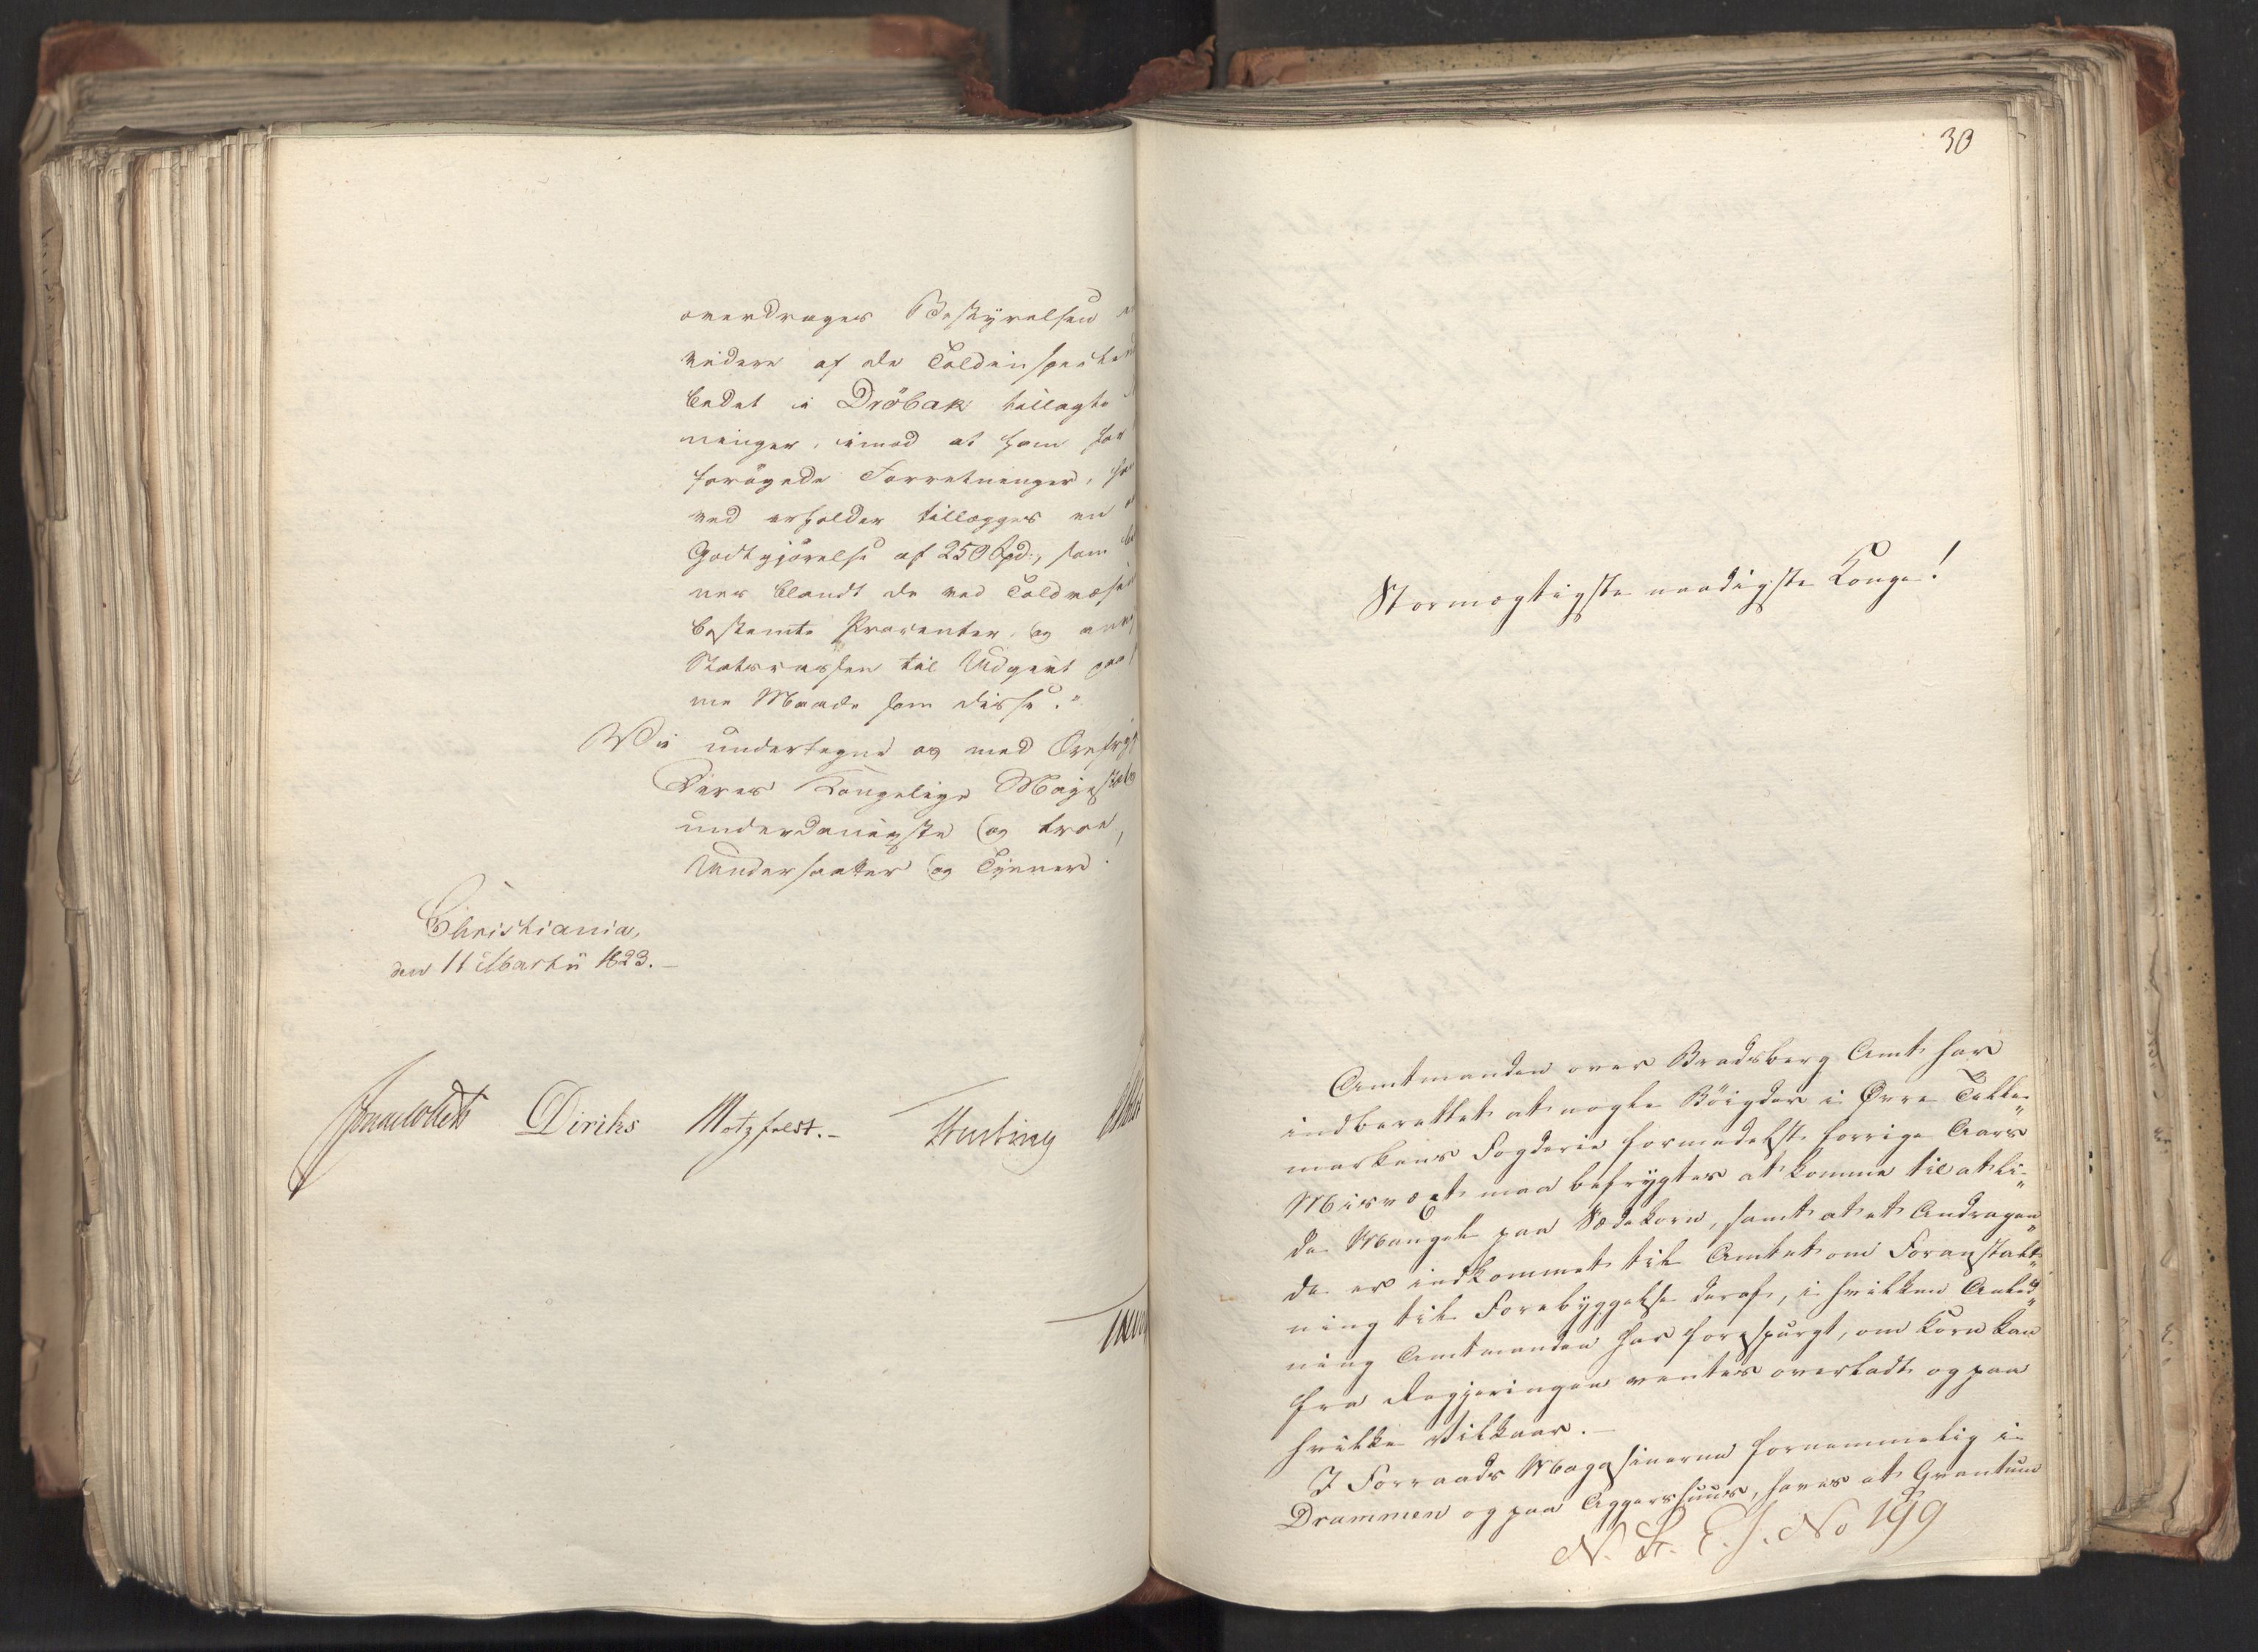 overdrages Bestyrelsen
videre af de Toldinspecteur
bedet i Dröbak tillagte
ninger, imod at ham for
forögede Forretninger,
ved erholder tillægges en
Godtgjörelse af 250 Spd:, som
nes blandt de ved Toldvæsen
bestemte Procenter, og
Statscassen til Udgivt paa
me Maade som disse."
Vi undertegne os med Ærefrygt
Deres Kongelige Majestæts
underdanigste og troe
Undersaatter og Tjenere.
Christiania,
den 11 Martii 1823.
Diriks Motzfeldt.
30
Stormægtigste naadigste Konge!
Amtmanden over Bradsberg Amt har
indberettet at nogle Böigder i Øvre Telle-
markens Fogderie formedelst forrige Aars
Misvæxt maa befrygtes at komme til at li-
de Mangel paa Sædekorn, samt at et Andragen
de er indkommet til Amtet om Foranstalt-
ning til Forebyggelse deraf, i hvilken Anled-
ning Amtmanden har forespurgt, om Korn kan
fra Regjeringen ventes overladt og paa
hvilke Vilkaar.-
I Forraads Magasinerne fornemmelig i
Drammen og paa Aggershuus, haves et Qvantum
N. St. E. J. No 199